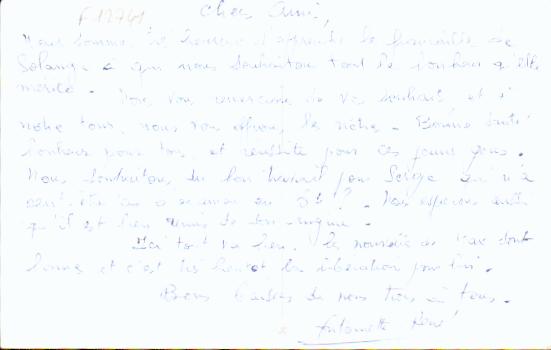 F12741
Chers Amis,
Nous sommes très heureux d'apprendre les fiançailles de
Solange à qui nous souhaitons tout le bonheur qu'elle
mérite.
Nous vous remercions de vos souhaits et à
notre tour, nous vous offrons les nôtres - Bonne santé
bonheur pour tous, et réussite pour ces jeunes gens.
Nous souhaitons du bon travail pour Serge qui n'a
peut-être pas d'examen en Nous espérons aussi
qu'il est bien remis de son
Ici tout va bien. les nouvelles de sont
bonnes et c'est très bientôt la libération pour lui.
Bons baisers de nous trois à tous.
Antoinette René